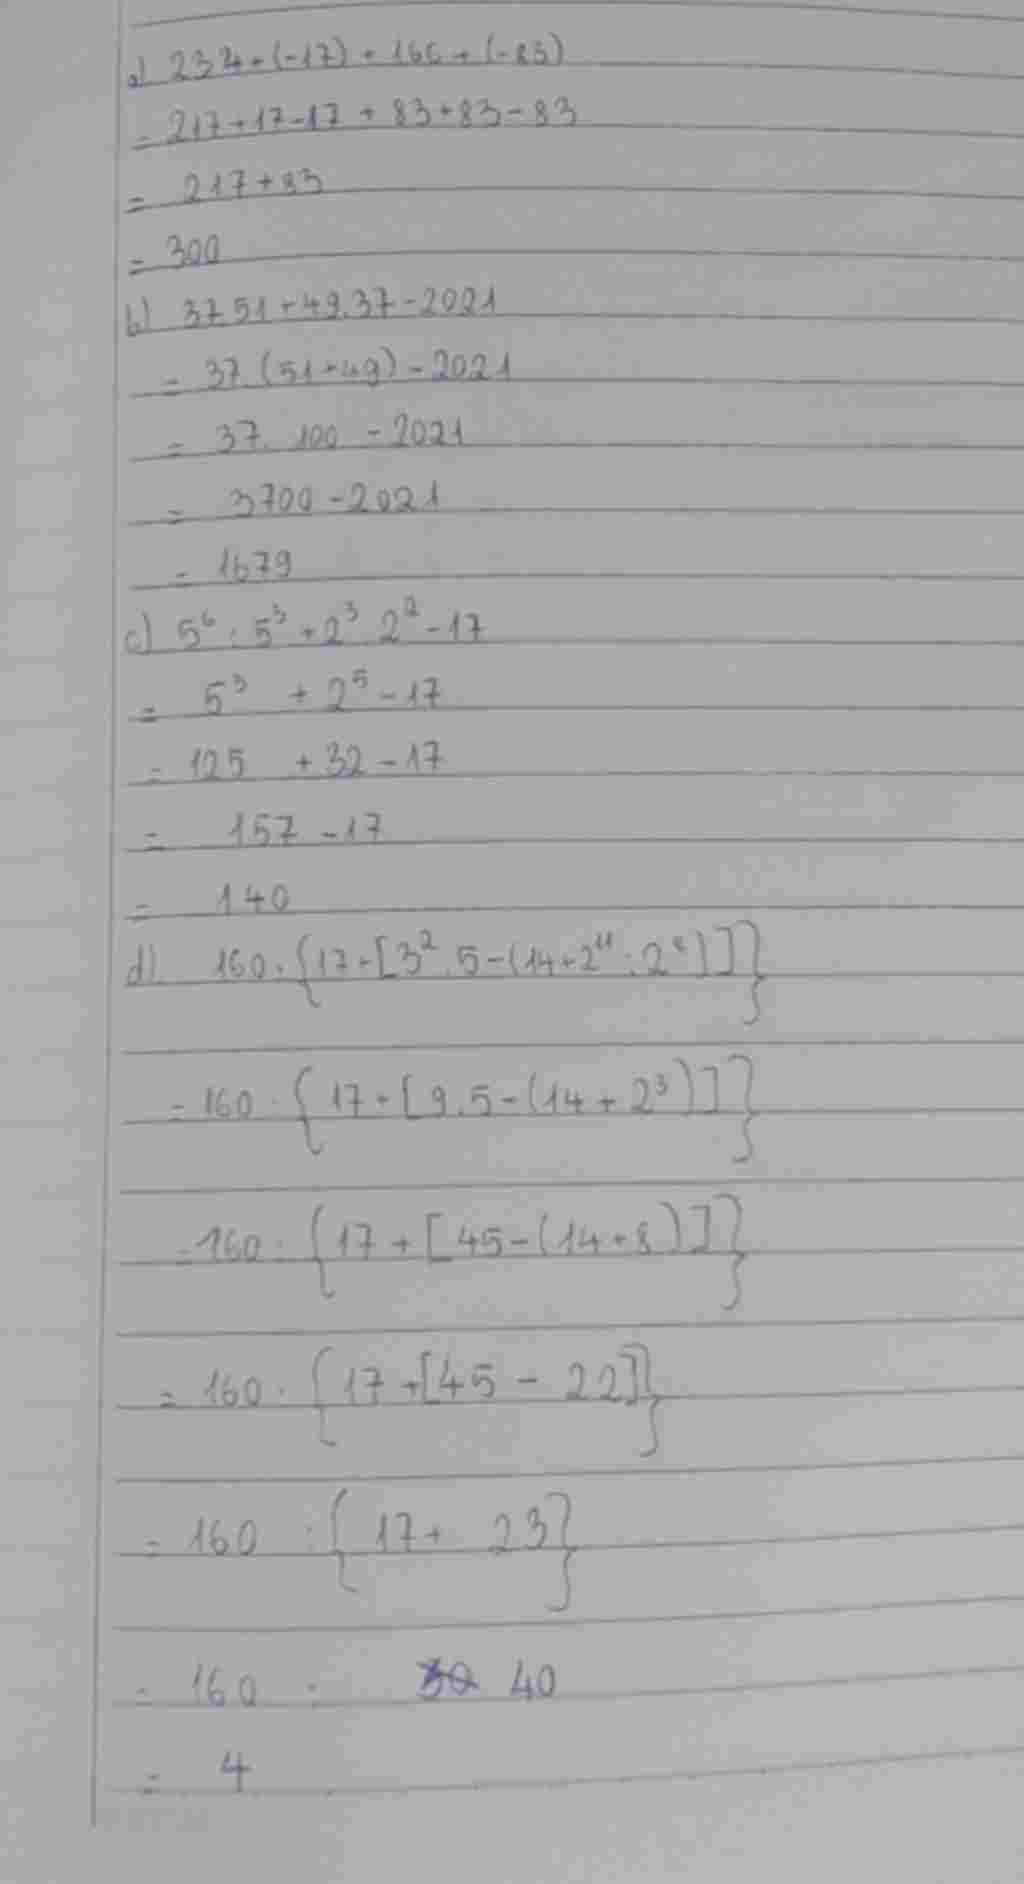 a) 234 + (-17) + 166 + (-83)
= 217 + 17 - 17 + 83 + 83 - 83
= 217 + 83
= 300
b) 37.51 + 49.37 - 2021
= 37.(51 + 49) - 2021
= 37. 100 - 2021
= 3700 - 2021
= 1679
c) 5⁶ : 5³ + 2³.2² - 17
= 5³ + 2⁵ - 17
= 125 + 32 - 17
= 157 - 17
= 140
d) 160 : {17 + [3².5 - (14 + 2¹¹ : 2⁸)]}
= 160 : {17 + [9.5 - (14 + 2³)]}
= 160 : {17 + [45 - (14 + 8)]}
= 160 : {17 + [45 - 22]}
= 160 : {17 + 23}
= 160 : 40
= 4